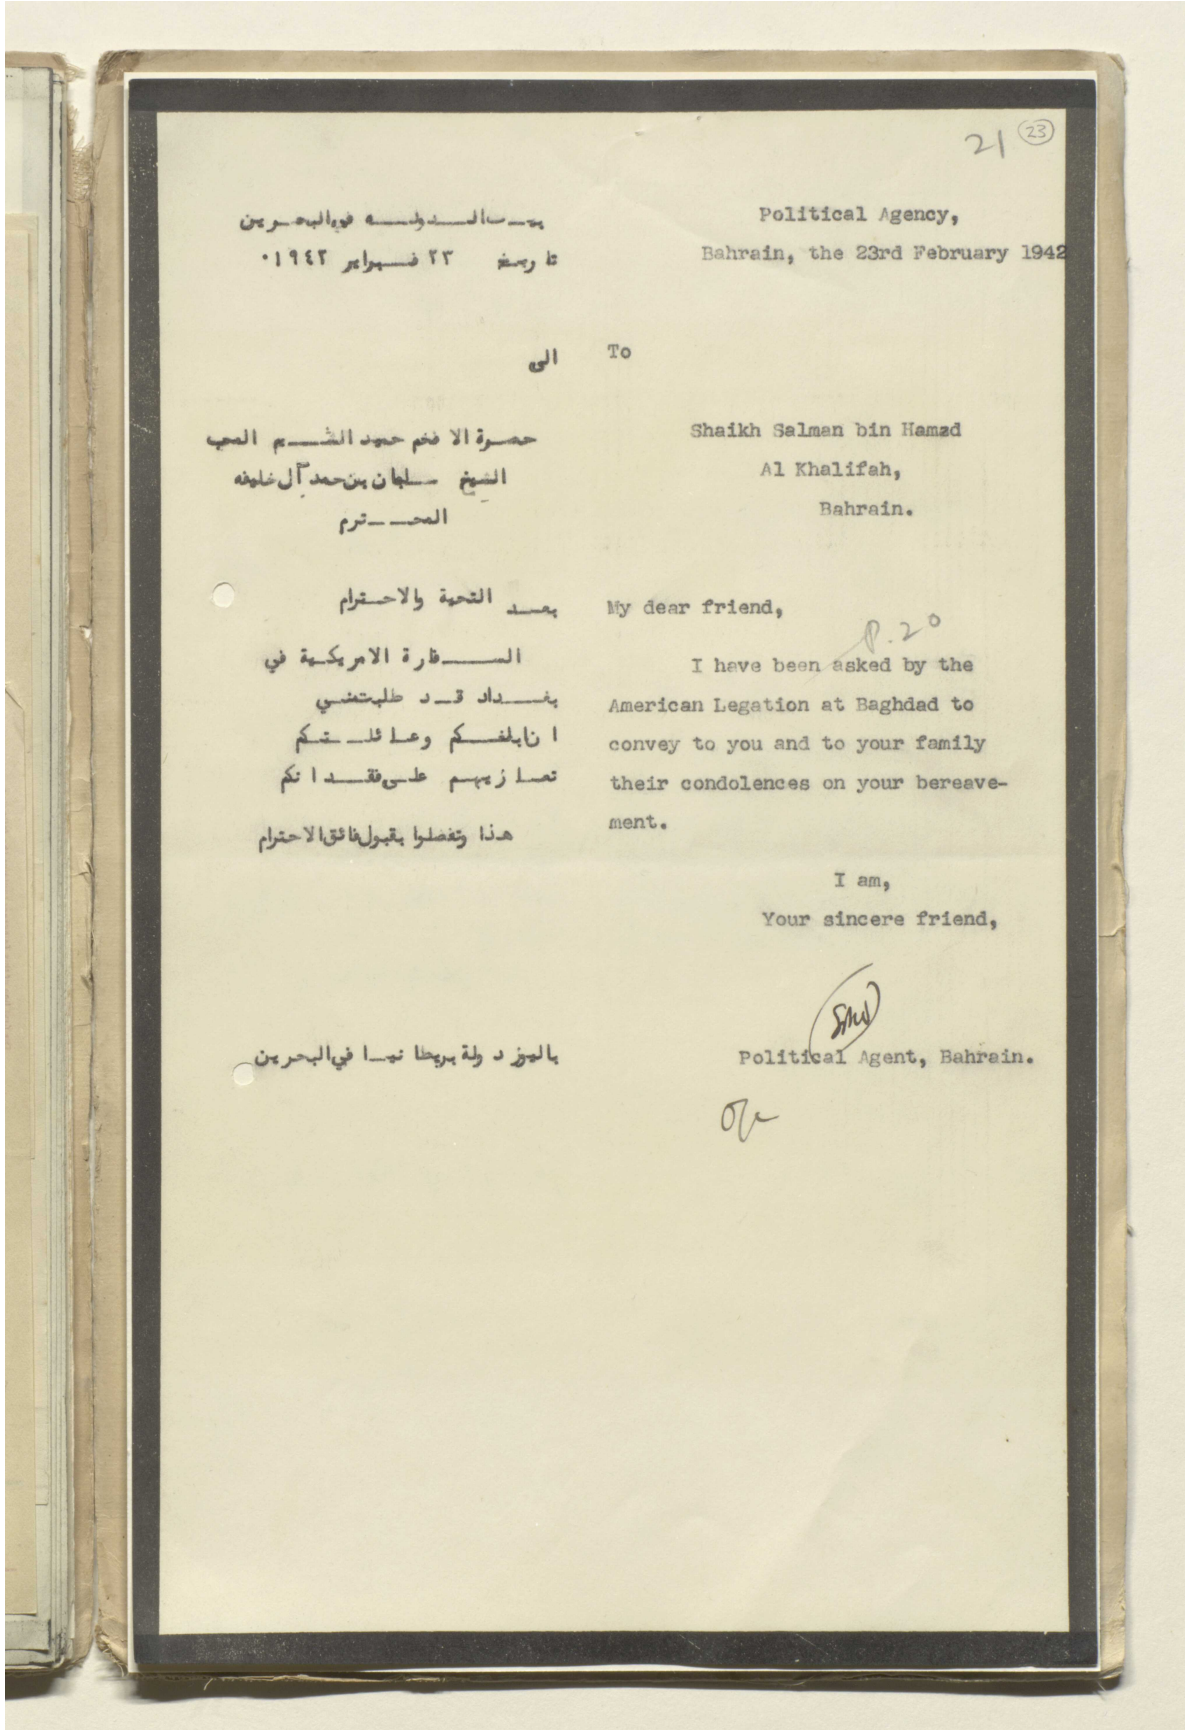 21 23
Political Agency,
Bahrain, the 23rd February 1942
To
Shaikh Salman bin Hamad
Al Khalifah,
Bahrain.
My dear friend,
P. 20
I have been asked by the
American Legation at Baghdad to
convey to you and to your family
their condolences on your bereave-
ment.
I am,
Your sincere friend,
Political Agent, Bahrain.
بيت الدوله في البحرين
تاريخ ٢٣ فبراير ١٩٤٢٠
الى
حضرة الافخم حميد الشيم المحب
الشيخ سلمان بن حمد آل خليفه
المحترم
بعد التحية والاحترام
السفارة الامريكية في
بغداد قد طلبت مني
ان ابلغكم وعائلتكم
تعازيهم على فقدانكم
هذا وتفضلوا بقبول فائق الاحترام
باليوز دولة بريطانيا في البحرين